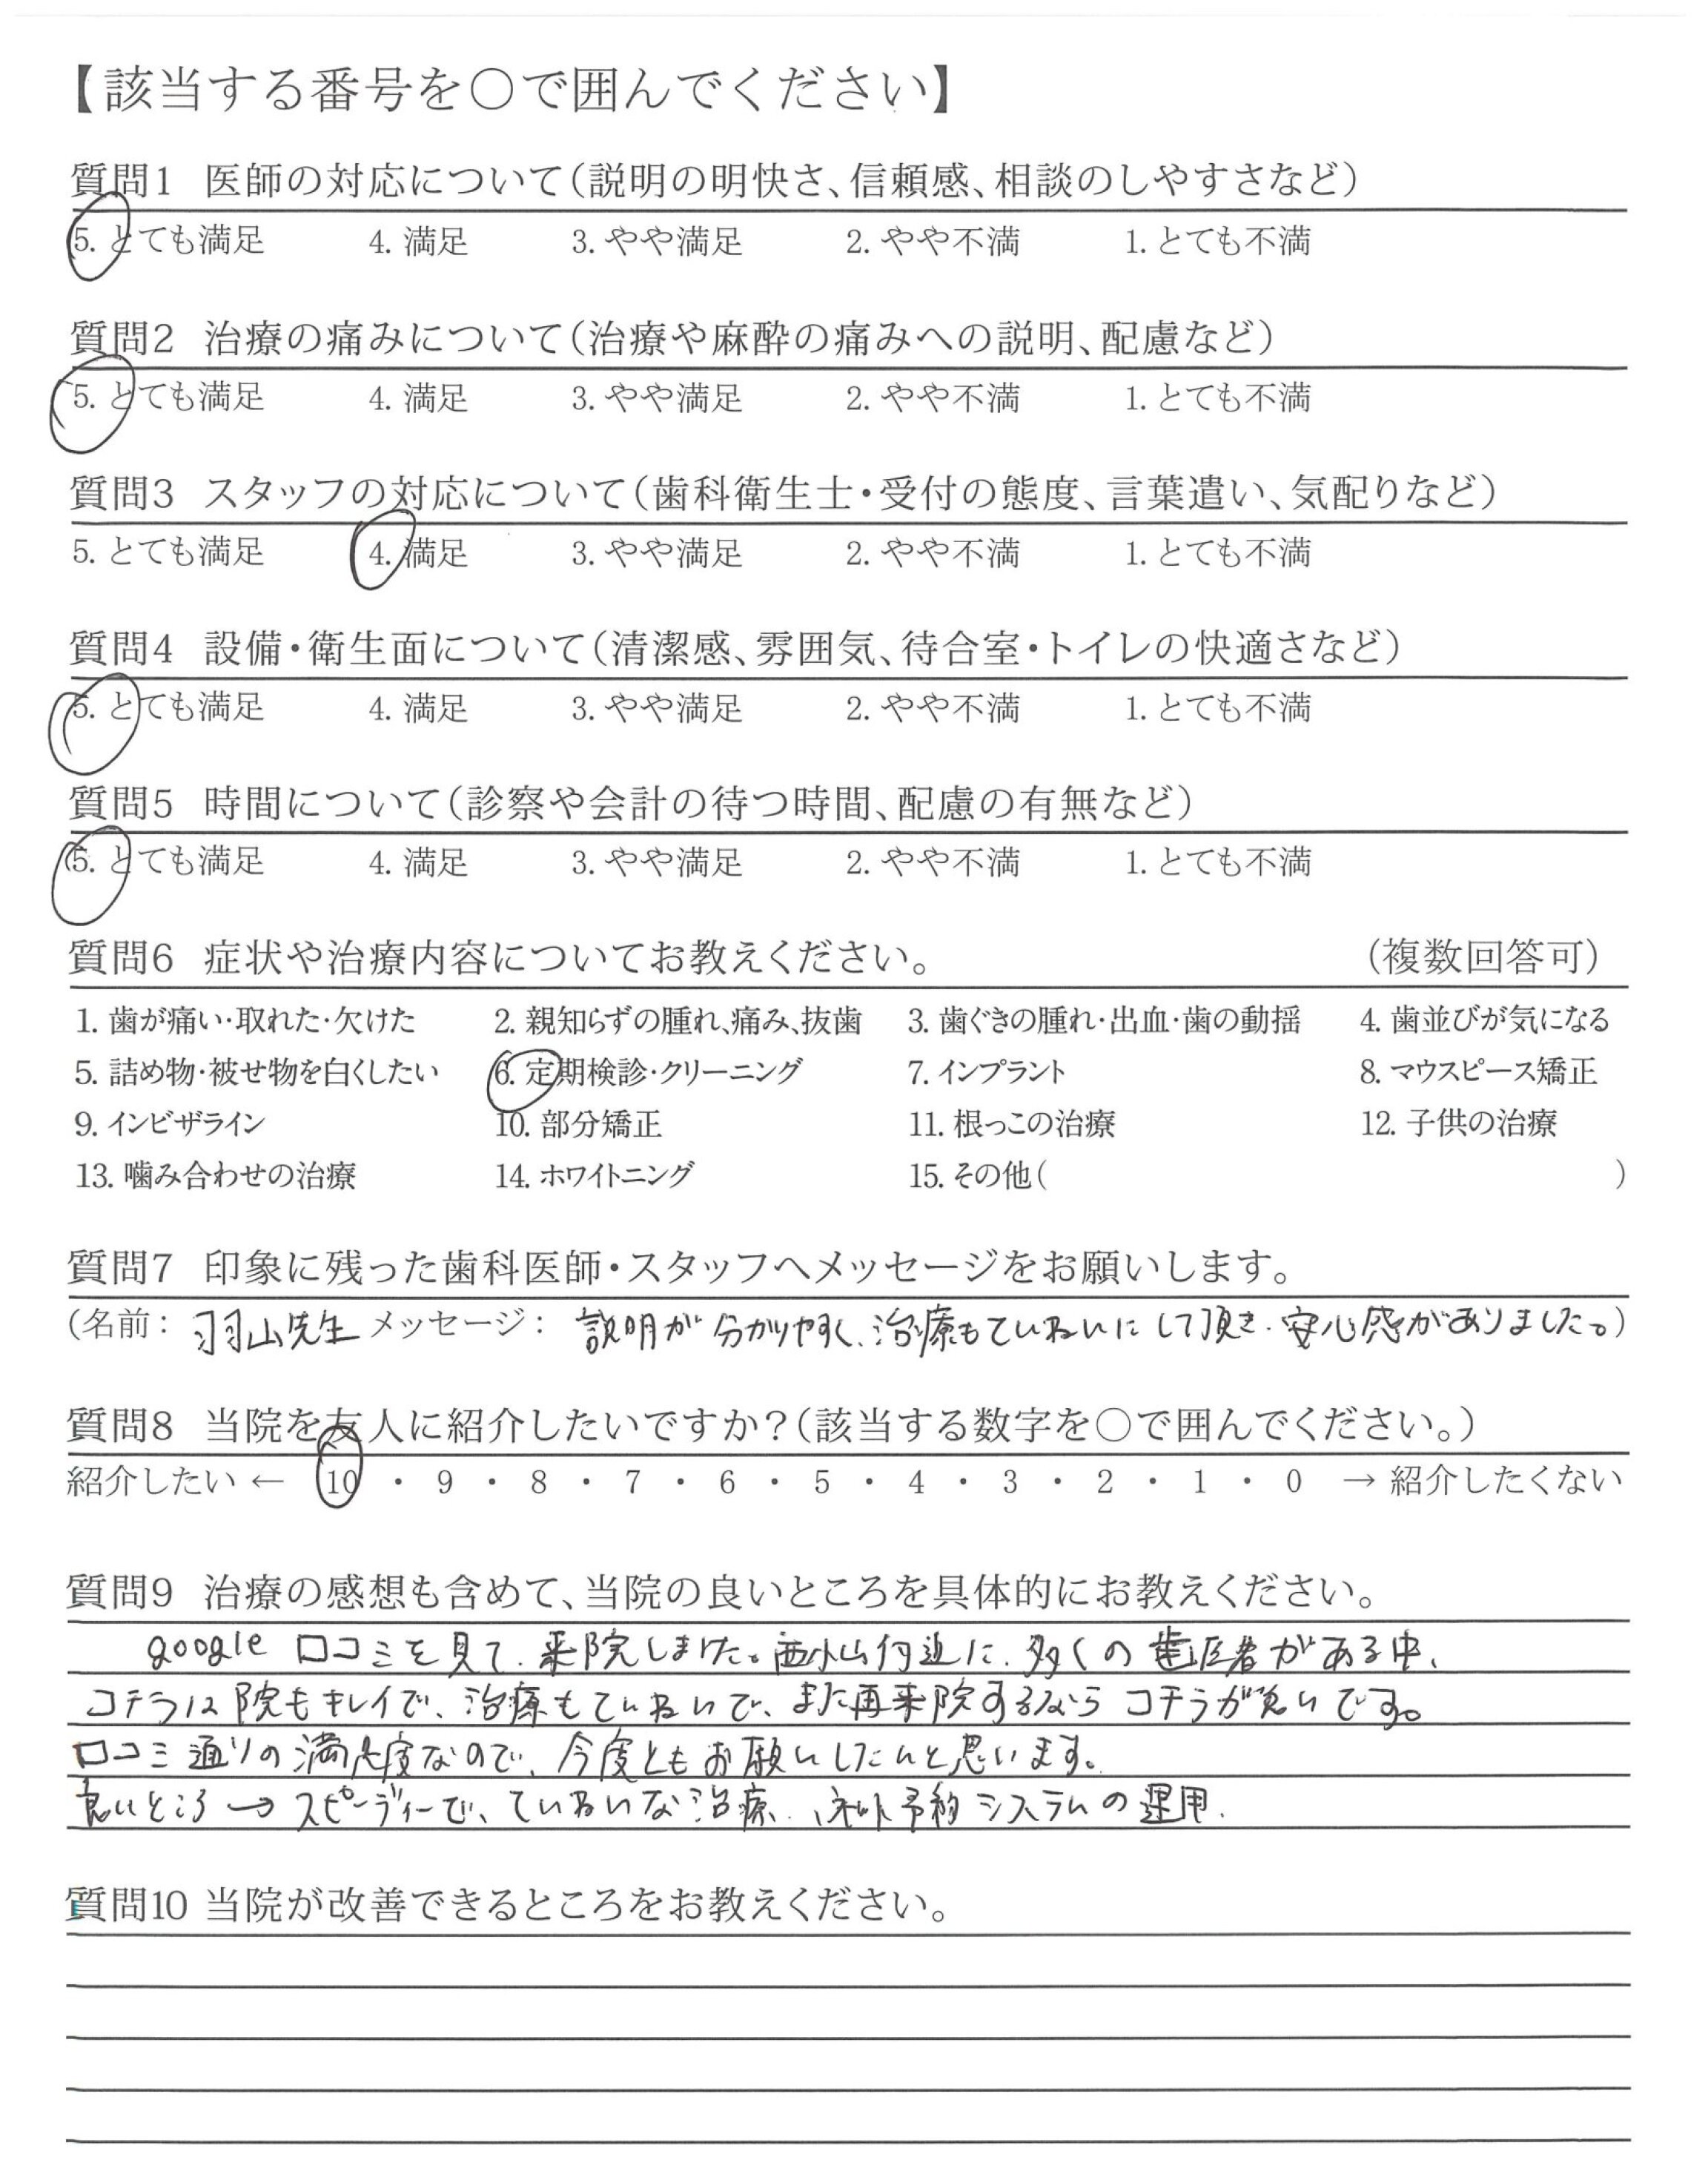 【該当する番号を○で囲んでください】
質問1 医師の対応について（説明の明快さ、信頼感、相談のしやすさなど）
5. とても満足 4. 満足 3. やや満足 2. やや不満 1. とても不満
質問2 治療の痛みについて（治療や麻酔の痛みへの説明、配慮など）
5. とても満足 4. 満足 3. やや満足 2. やや不満 1. とても不満
質問3 スタッフの対応について（歯科衛生士・受付の態度、言葉遣い、気配りなど）
5. とても満足 4. 満足 3. やや満足 2. やや不満 1. とても不満
質問4 設備・衛生面について（清潔感、雰囲気、待合室・トイレの快適さなど）
5. とても満足 4. 満足 3. やや満足 2. やや不満 1. とても不満
質問5 時間について（診察や会計の待つ時間、配慮の有無など）
5. とても満足 4. 満足 3. やや満足 2. やや不満 1. とても不満
質問6 症状や治療内容についてお教えください。 （複数回答可）
1. 歯が痛い・取れた・欠けた 2. 親知らずの腫れ、痛み、抜歯 3. 歯ぐきの腫れ・出血・歯の動揺 4. 歯並びが気になる
5. 詰め物・被せ物を白くしたい 6. 定期検診・クリーニング 7. インプラント 8. マウスピース矯正
9. インビザライン 10. 部分矯正 11. 根っこの治療 12. 子供の治療
13. 噛み合わせの治療 14. ホワイトニング 15. その他（ ）
質問7 印象に残った歯科医師・スタッフへメッセージをお願いします。
（名前： 羽山先生 メッセージ： 説明が分かりやすく、治療もていねいにして頂き、安心感がありました。）
質問8 当院を友人に紹介したいですか？（該当する数字を○で囲んでください。）
紹介したい ← 10 ・ 9 ・ 8 ・ 7 ・ 6 ・ 5 ・ 4 ・ 3 ・ 2 ・ 1 ・ 0 → 紹介したくない
質問9 治療の感想も含めて、当院の良いところを具体的にお教えください。
google 口コミを見て、来院しました。西小山付近に、多くの歯医者がある中、
コチラは院もキレイで、治療もていねいで、また再来院するならコチラが良いです。
口コミ通りの満足度なので、今度ともお願いしたいと思います。
良いところ→スピーディーで、ていねいな治療、ネット予約システムの運用.
質問10 当院が改善できるところをお教えください。